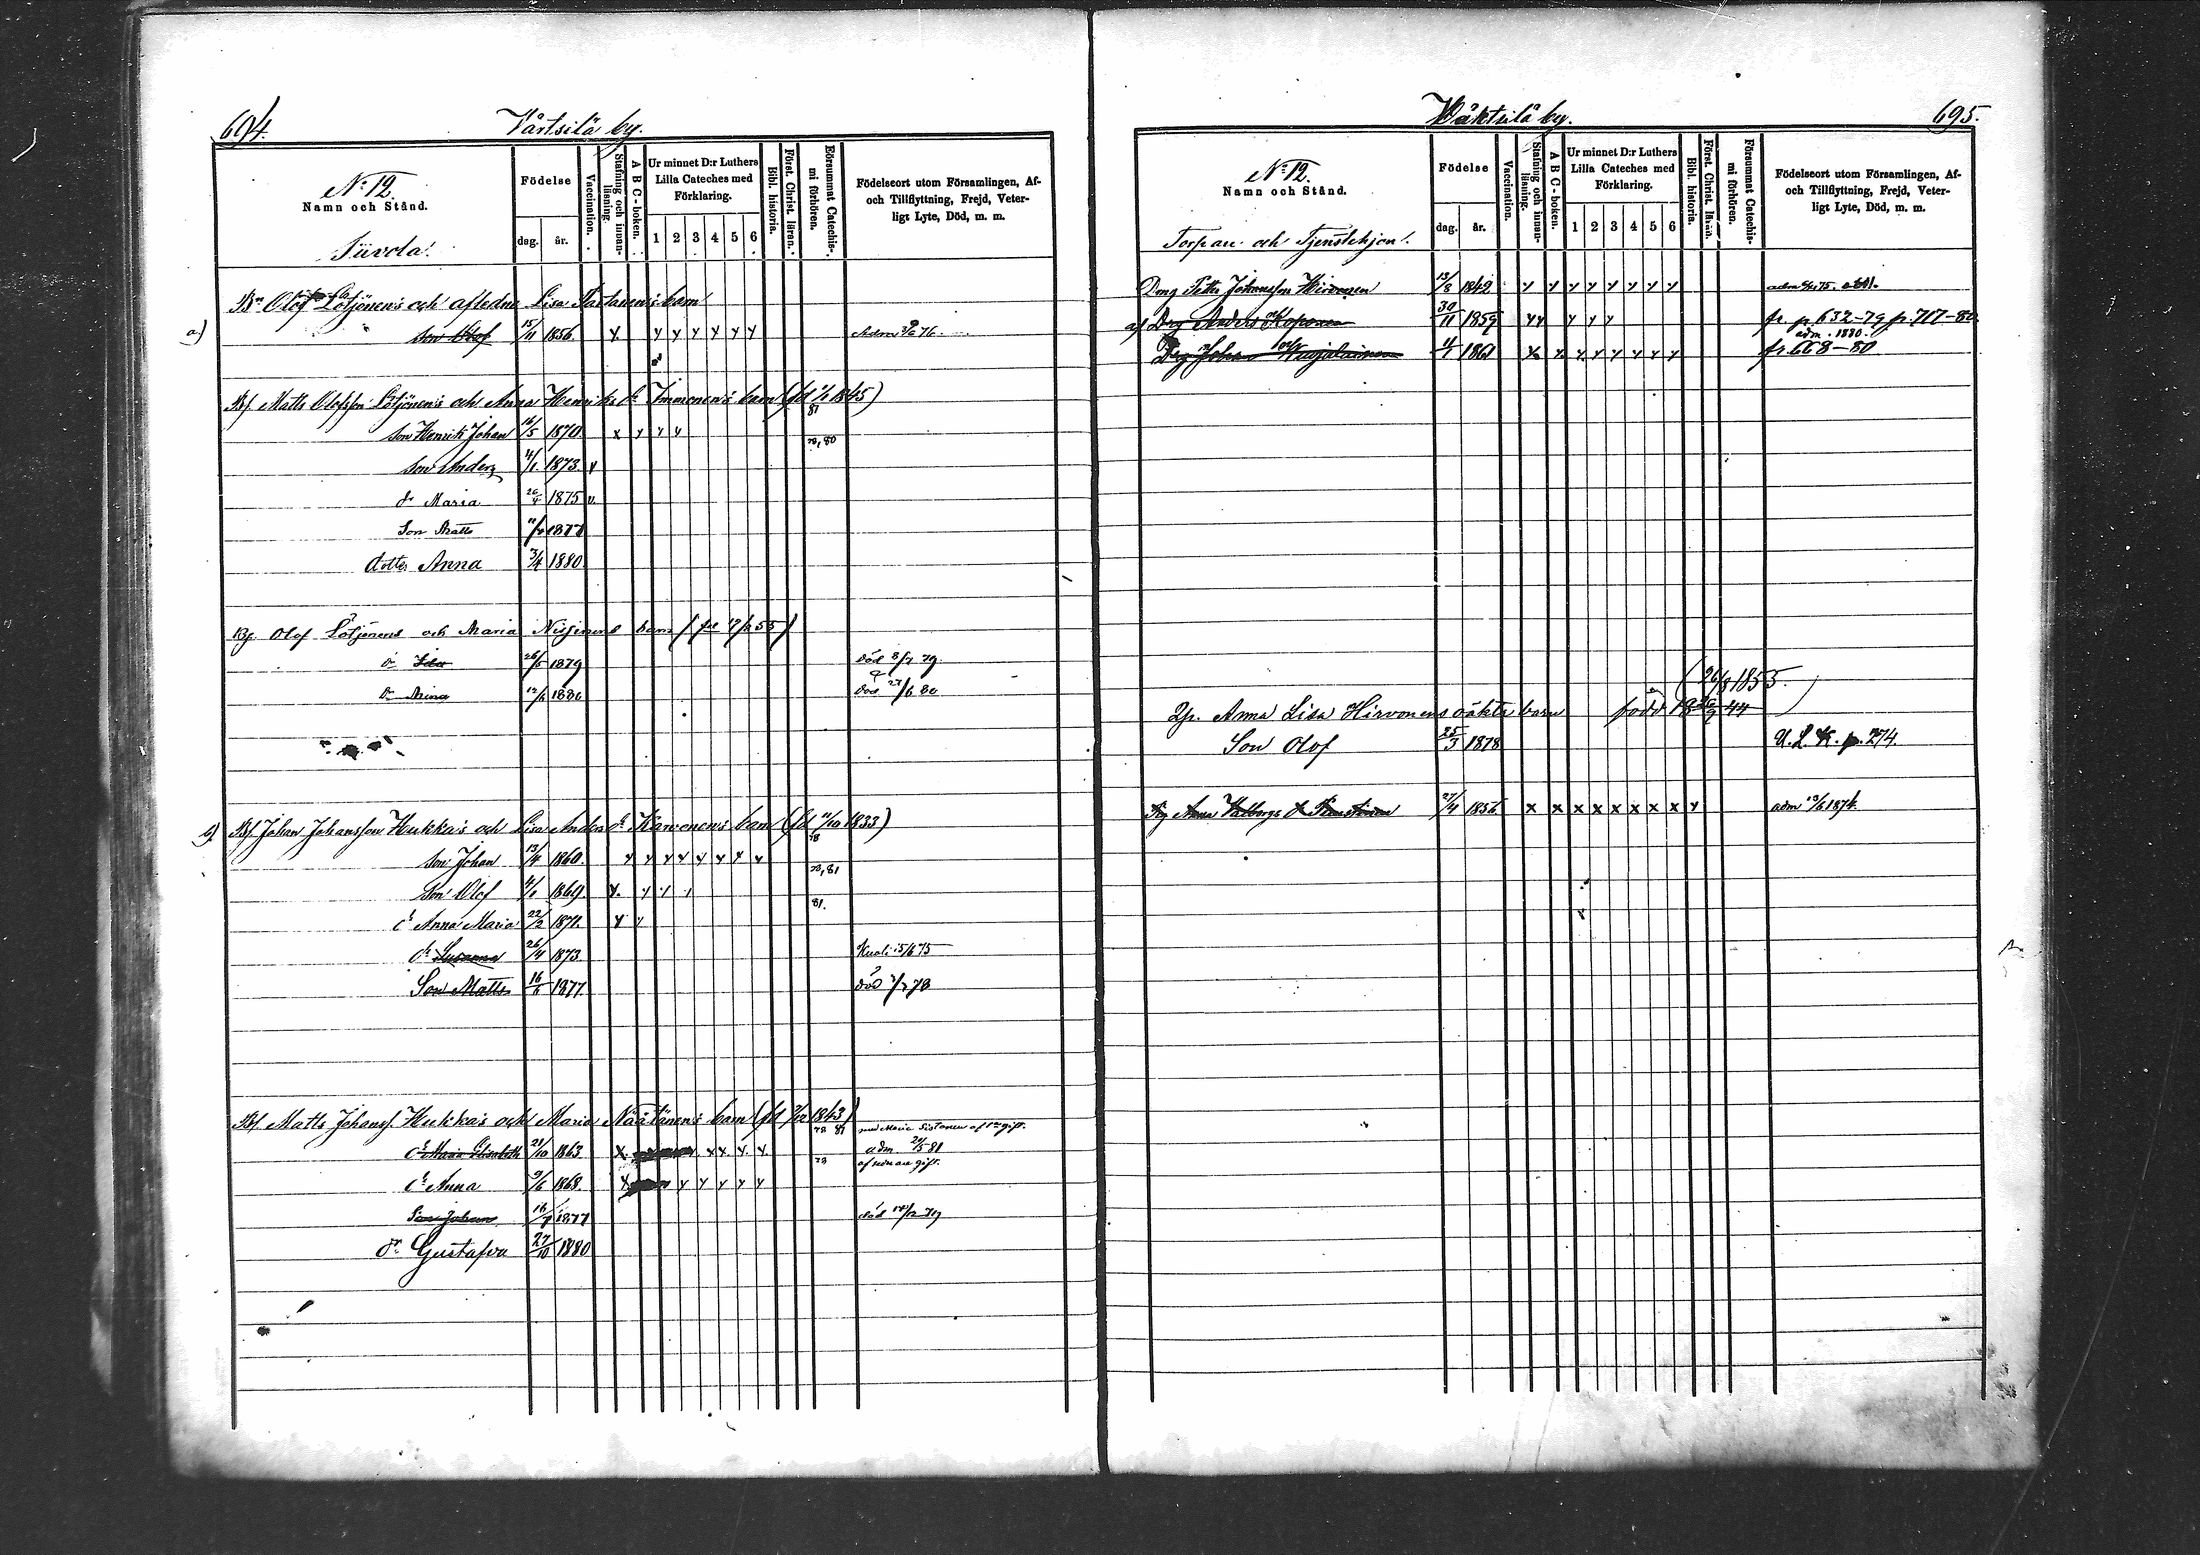 694.
Värtsilä by.
No 12.
Namn och Stånd.
Födelse
dag.
år.
Vaccination.
Stafning och innan-läsning.
A B C-boken.
Ur minnet D:r Luthers Lilla Cateches med Förklaring.
1 2 3 4 5 6
Bibl. historia.
Först. Christ. läran.
Försummat Catechis-mi förhören.
Födelseort utom Församlingen, Af- och Tillflyttning, Frejd, Veter-ligt Lyte, Död, m. m.
Bn Olof Lötjönen's och aflednes Lisa barn
a) son Olof 15/11 1856. x. y y y y y y Adm 76
Bf Matts Olofsson Lötjönen's och Anna Henriks dr Immonen's barn (fd 1/1 1845)
81
son Henrik Johan 16/5 1870. x y y y
78, 80
son Anders 4/1 1873. v
dr Maria 26/4 1875 v
Son Matts 1877
dotter Anna 3/4 1880
Bf. Olof Lötjönens och Maria barn
dr 26/5 1879 död 8/7 79.
dr Mina 12/6 1880 död 27/6 80
b) Bf Johan Johansson Hukka's och Lisa Anders dr Karvonen's barn (fd 11/10 1833)
78
son Johan 13/4 1860. y y y y y y y y
78, 81
son Olof 4/1 1869. y.
81.
dr Anna Maria 22/2 1871. y y
dr Susanna 26/4 1873. Kuoli 15/6 75
Son Matts 16/6 1877. död 78
Bf Matts Johanss. Hukka's och Maria Näätänen's barn (fd 1843)
78 81 med Maria Sistonen af 1:a gift.
dr Maria Elisabeth 21/10 1863. x xx y y adm. 81
78 af sednare gift.
dr Anna 9/6 1868. y y y y y y
Son Johan 1877 död 14/12 79
dr Gustafva 27/10 1880
Wärtsilä by.
695.
No 12.
Namn och Stånd.
Torpare och Tjenstehjon.
Födelse
dag.
år.
Vaccination.
Stafning och innan-läsning.
A B C-boken.
Ur minnet D:r Luthers Lilla Cateches med Förklaring.
1 2 3 4 5 6
Bibl. historia.
Först. Christ. läran.
Försummat Catechis-mi förhören.
Födelseort utom Församlingen, Af- och Tillflyttning, Frejd, Veter-ligt Lyte, Död, m. m.
Dräng Petter Johansson Hirvonen 13/8 1842 y y y y y y y y
Drg Anders Koponen 30/11 1859 y y y y y fr. p. 632-79 p. 717-80
adm. 1880.
Drg Johan 1861 x y y y y y y y fr. 668-80
(26/8 1855.)
Anna Lisa Hirvonens oäkta barn född
Son Olof 25/3 1878 U. L. K. p. 274.
Pig Anna Valborg 27/4 1856 x x x x x x x x y adm 1874.